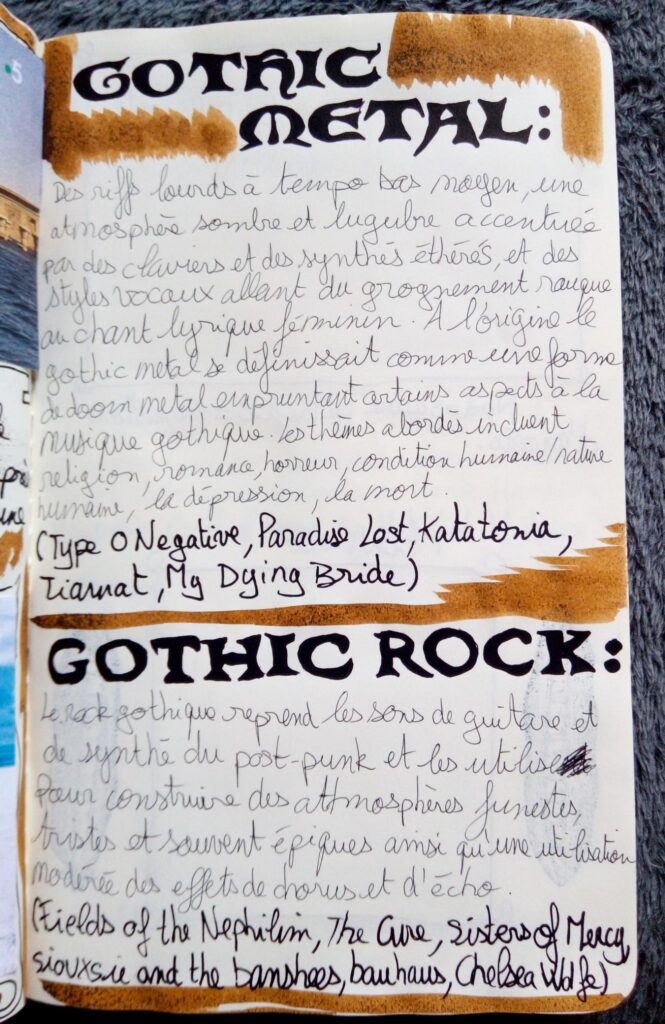 GOTHIC
METAL:
Des riffs lourds à tempo bas moyen, une
atmosphère sombre et lugubre accentuée
par des claviers et des synthés éthérés, et des
styles vocaux allant du grognement rauque
au chant lyrique féminin. À l'origine le
gothic metal se définissait comme une forme
de doom metal empruntant certains aspects à la
musique gothique. Les thèmes abordés incluent
religion, romance, horreur, condition humaine/nature
humaine, la dépression, la mort.
(Type O Negative, Paradise Lost, Katatonia,
Tiamat, My Dying Bride)
GOTHIC ROCK:
Le rock gothique reprend les sons de guitare et
de synthé du post-punk et les utilise
Pour construire des atthmosphères funestes,
tristes et souvent épiques ainsi qu'une utilisation
modérée des effets de chorus et d'écho.
(Fields of the Nephilim, The Cure, Sisters of Mercy,
siouxsie and the banshees, bauhaus, Chelsea Wolfe)
5